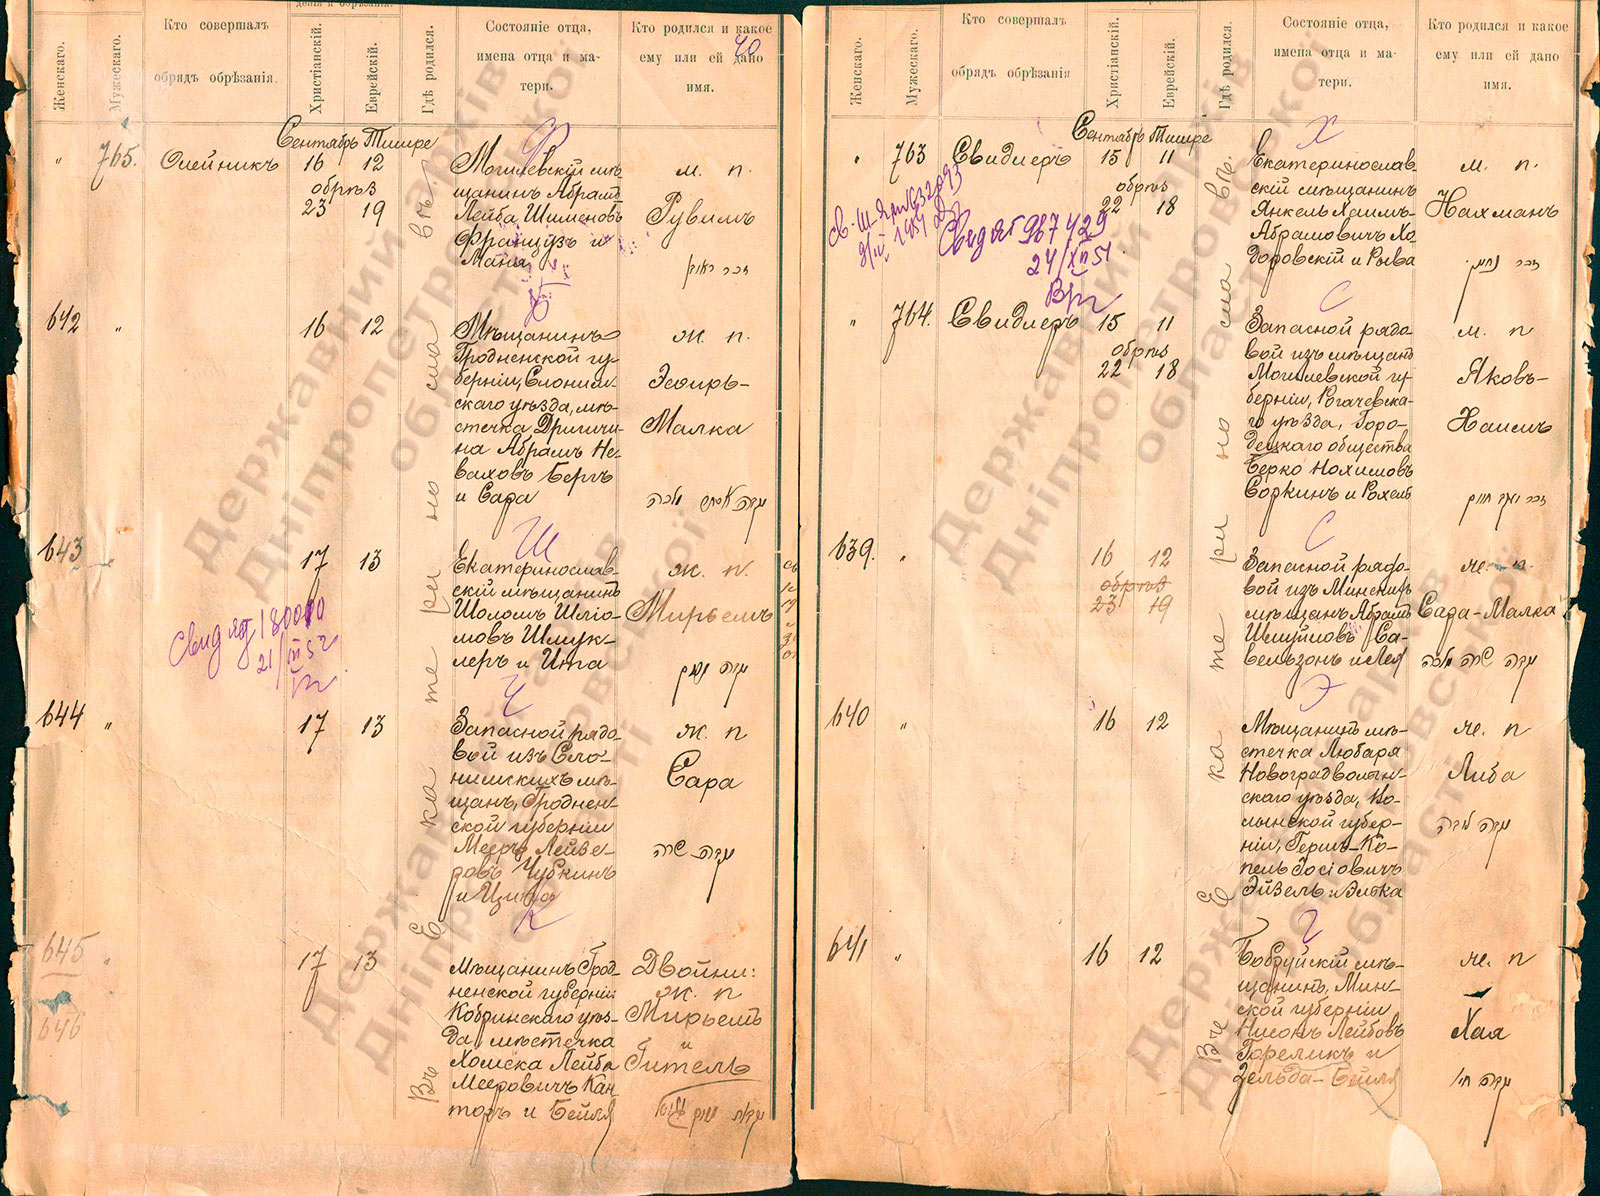 Женскаго.
Мужескаго.
Кто совершалъ
обрядъ обрѣзанія.
Христіанскій.
Еврейскій.
Гдѣ родился.
Состояніе отца,
имена отца и ма-
тери.
Кто родился и какое
ему или ей дано
имя.
40
Сентябрь Тишре
"
765.
Олейникъ
16 12
обрѣз
23 19
Ф
Могилевскій мѣ-
щанинъ Абрамъ
Лейба Шименовъ
Французъ и
Маня
м. п.
Рувимъ
642
"
16 12
Мѣщанинъ
Гродненской гу-
берніи, Слоним-
скаго уѣзда, мѣ-
стечка Дрогичи-
на Абрамъ Не-
ваховъ Бергъ
и Сара
ж. п.
Эсѳирь-
Малка
643
"
17 13
Ш
Екатеринослав-
скій мѣщанинъ
Шоломъ Шліо-
мовъ Шмук-
леръ и Ита
ж. п.
Мирьемъ
Свид ЯТ 180000
21/XII 52
644
"
17 13
Ч
Запасной рядо-
вой изъ Сло-
нимскихъ мѣ-
щанъ, Гроднен-
ской губерніи
Мееръ Лейзе-
ровъ Чубкинъ
и Ципа
ж. п
Сара
שרה
645
646
"
17 13
К
Мѣщанинъ Грод-
ненской губерніи
Кобринскаго уѣз-
да мѣстечка
Хомска Лейба
Мееровичъ Кан-
торъ и Бейля
Двойни:
ж. п
Мирьемъ
и
Гитель
Въ Екатеринославѣ.
Женскаго.
Мужескаго.
Кто совершалъ
обрядъ обрѣзанія
Христіанскій.
Еврейскій.
Гдѣ родился.
Состояніе отца,
имена отца и ма-
тери.
Кто родился и какое
ему или ей дано
имя.
Сентябрь Тишре
"
763
Свидлеръ
15 11
обрѣз
22 18
Х
Екатеринослав-
скій мѣщанинъ
Янкель Хаимъ-
Абрамовичъ Хо-
доровскій и Рыва
м. п.
Нахманъ
Свид ЯТ 987429
24/XII 51.
"
764.
Свидлеръ
15 11
обрѣз
22 18
С
Запасной рядо-
вой изъ мѣщанъ
Могилевской гу-
берніи, Рогачевска-
го уѣзда, Горо-
децкаго общества
Берко Нохимовъ
Соркинъ и Рохель
м. п
Яковъ-
Хаимъ
639.
"
16 12
обрѣз
23 19
С
Запасной рядо-
вой изъ Минскихъ
мѣщанъ Абрамъ
Шмуйловъ Са-
вельзонъ и Лея
же. п.
Сара-Малка
שרה מלכה
640
"
16 12
Э
Мѣщанинъ мѣ-
стечка Любара
Новоградволын-
скаго уѣзда, Во-
лынской губер-
ніи, Гершъ-Ко-
пель Іосіовичъ
Эйзель и Элька
же. п
Либа
641
"
16 12
Г
Бобруйскій мѣ-
щанинъ, Мин-
ской губерніи
Нисонъ Лейбовъ
Гореликъ и
Зельда-Бейля
же. п
Хая
Въ Екатеринославѣ.
Державний архів
Дніпропетровської
області